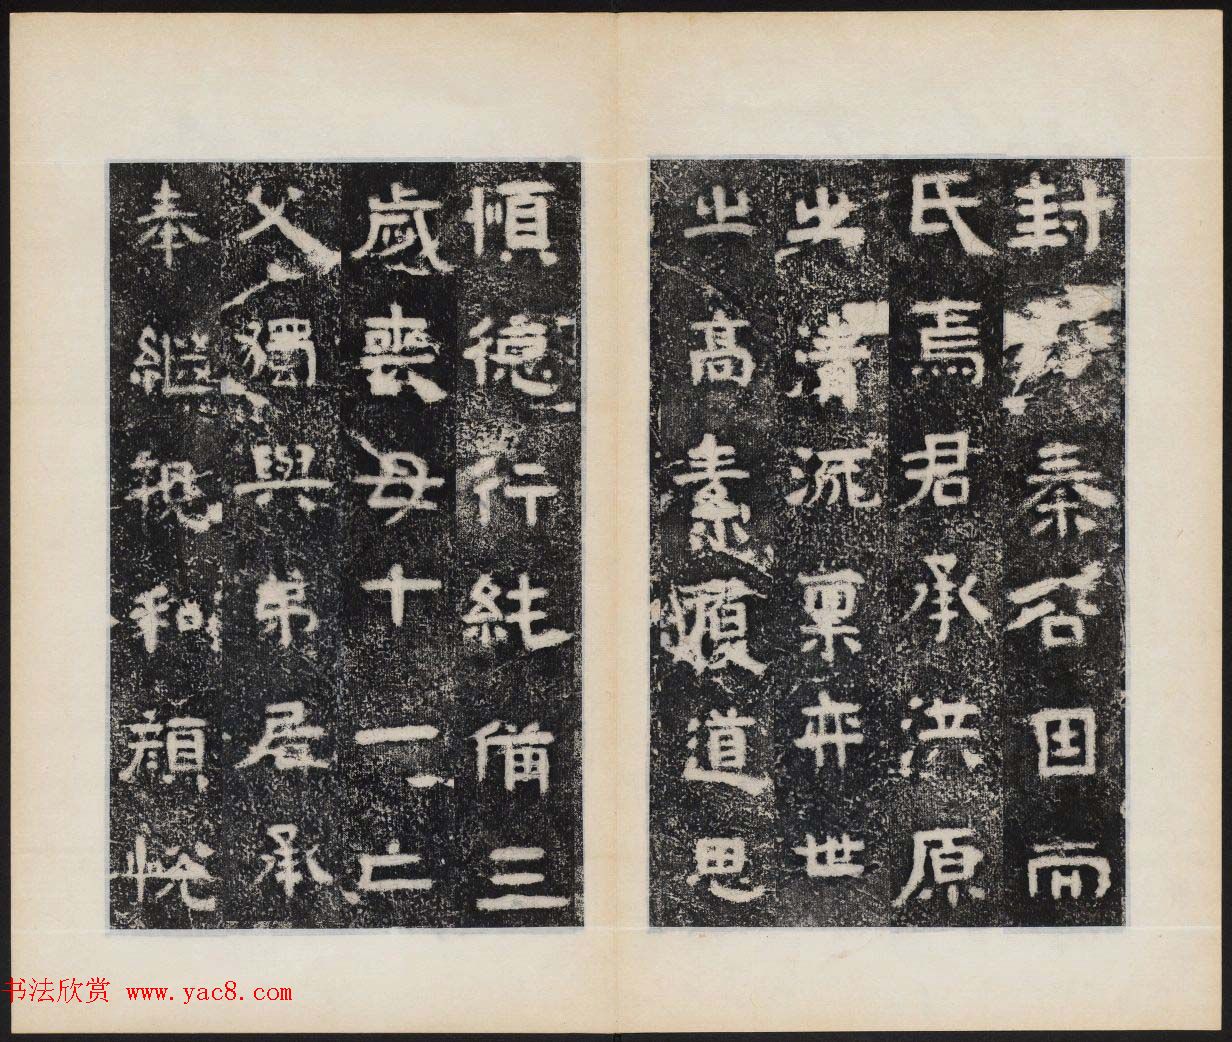 封秦因而
氏焉君承洪原
之清流稟弈世
之高素履道思
順德行純備三
歲喪母十一亡
父獨與弟居承
奉繼親和顏悅
书法欣赏 www.yac8.com